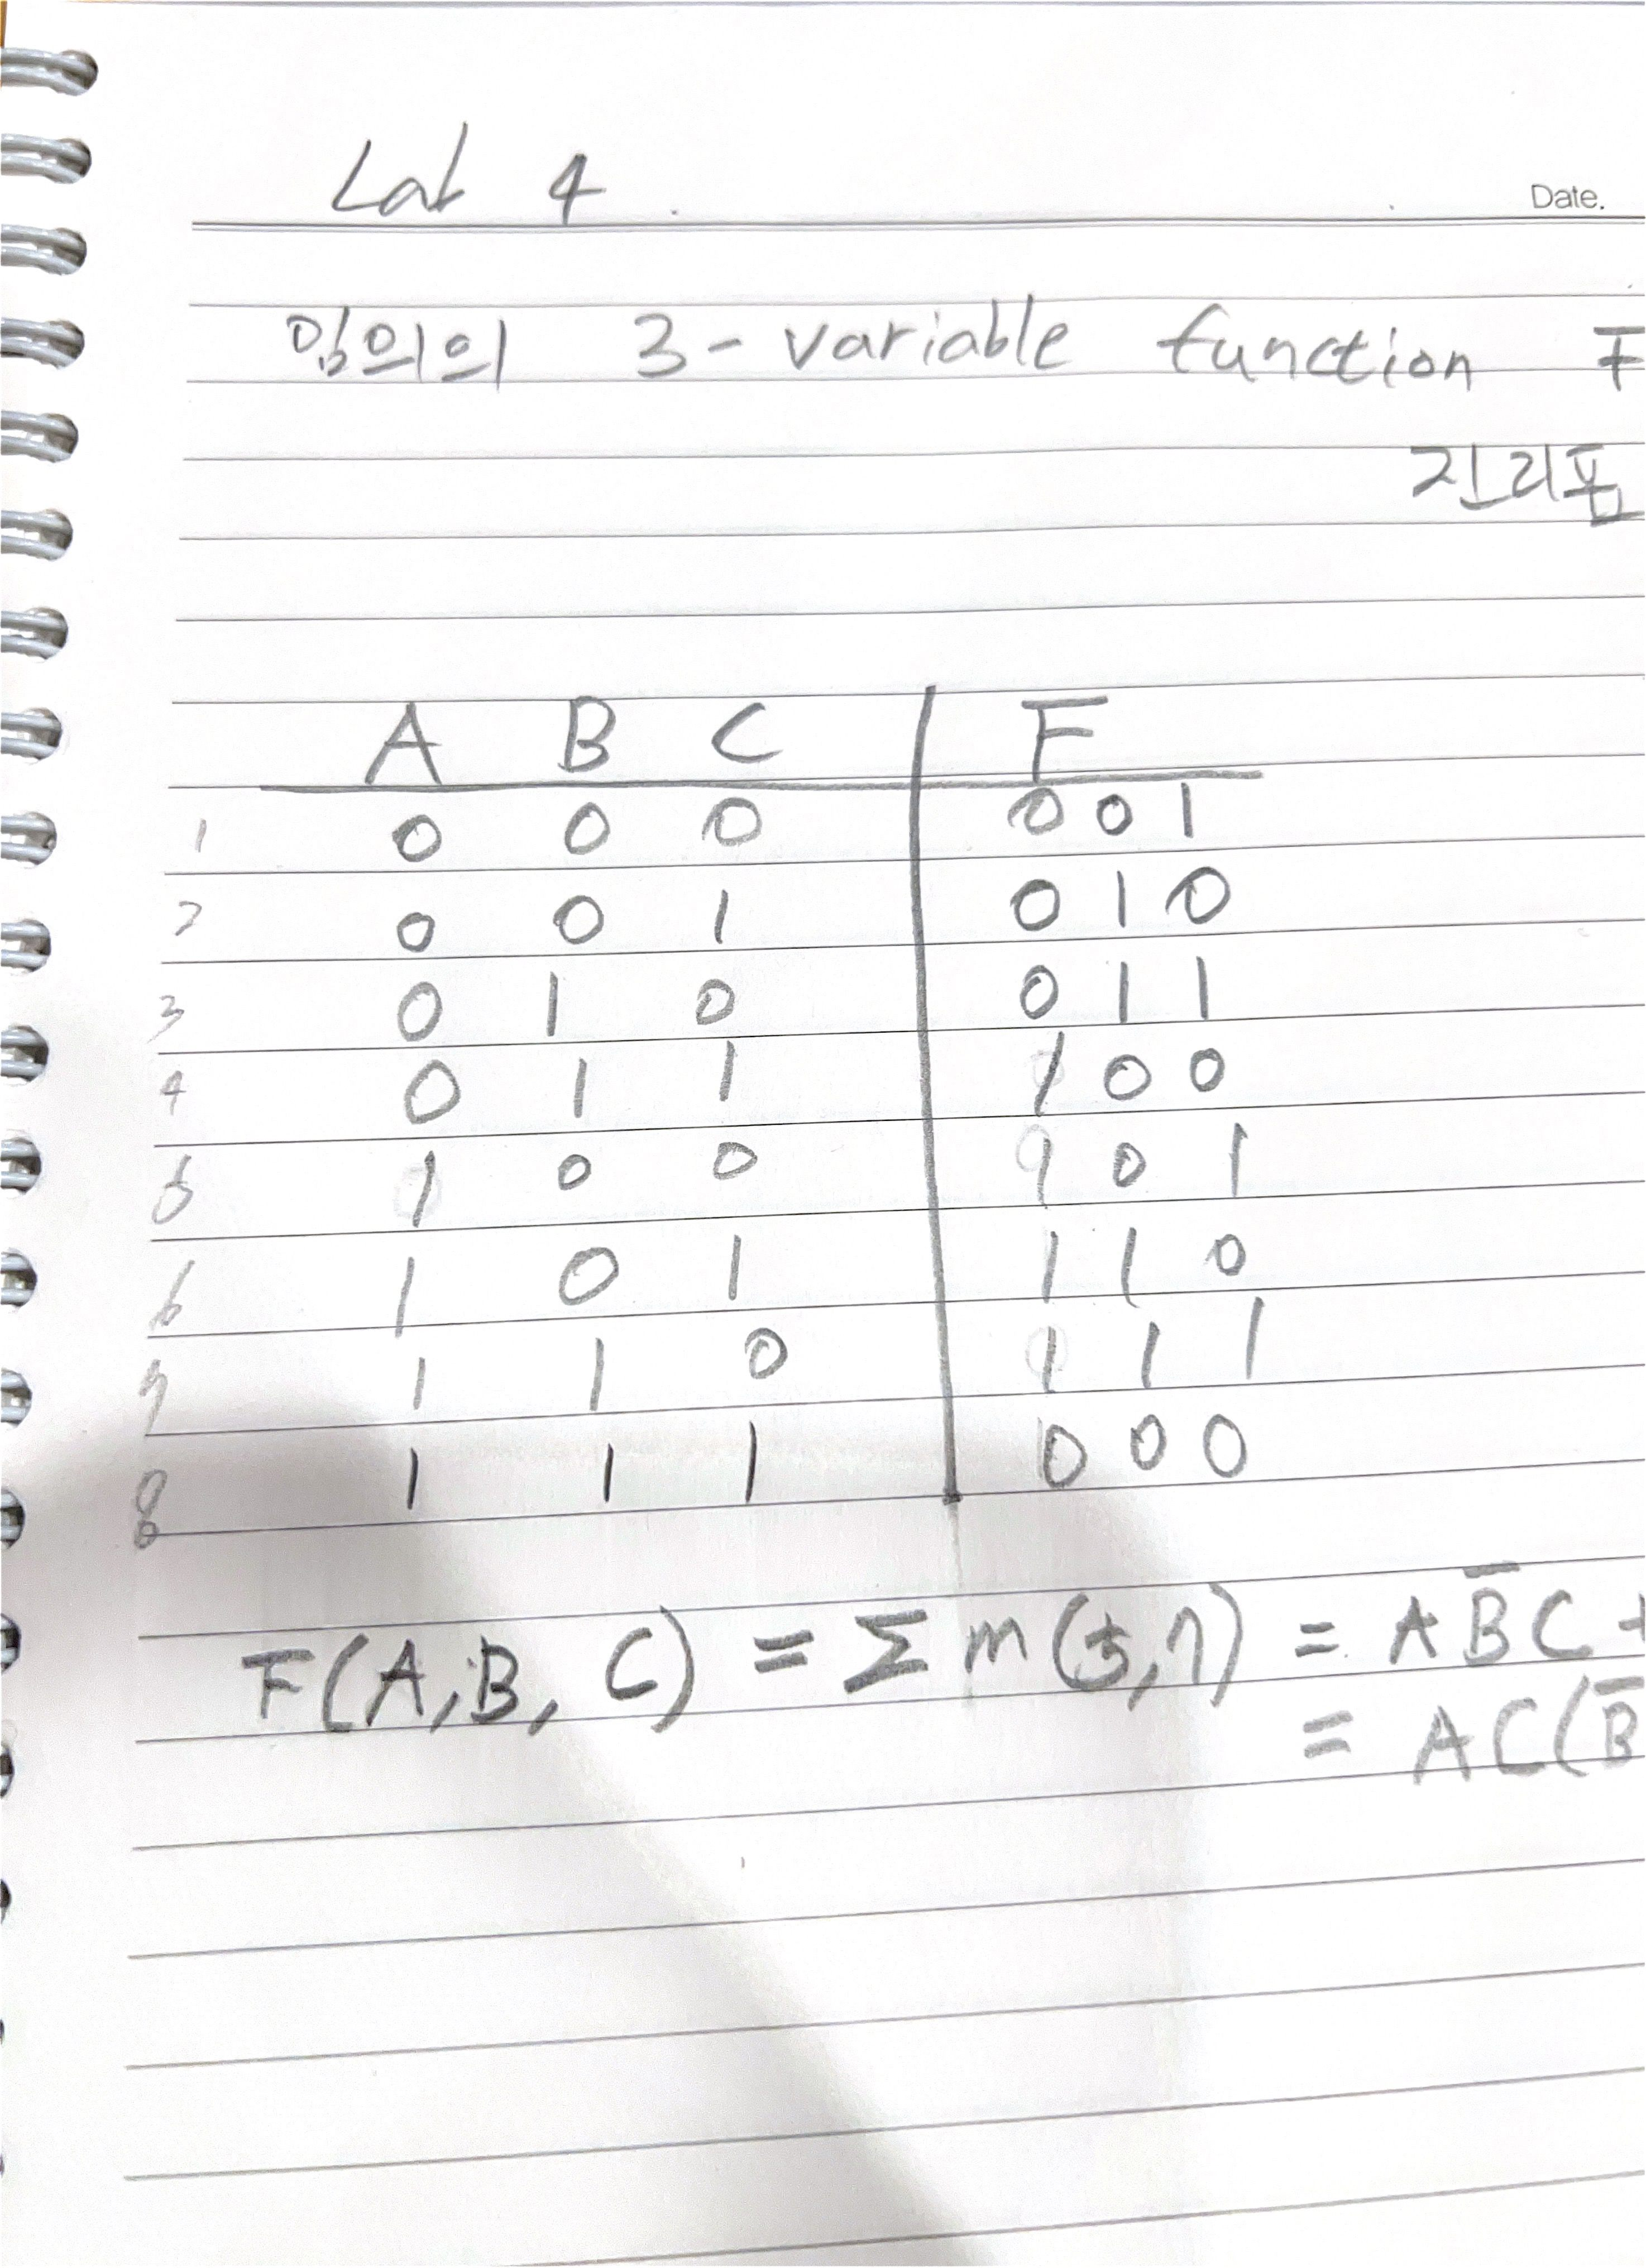 Lab 4
Date.
임의의 3-variable function F
진리표
A B C F
1 0 0 0 0 0 1
2 0 0 1 0 1 0
3 0 1 0 0 1 1
4 0 1 1 1 0 0
5 1 0 0 1 0 1
6 1 0 1 1 1 0
7 1 1 0 1 1 1
8 1 1 1 0 0 0
F(A,B,C) = Σm(5,7) = AB̅C +
= AC(B̅